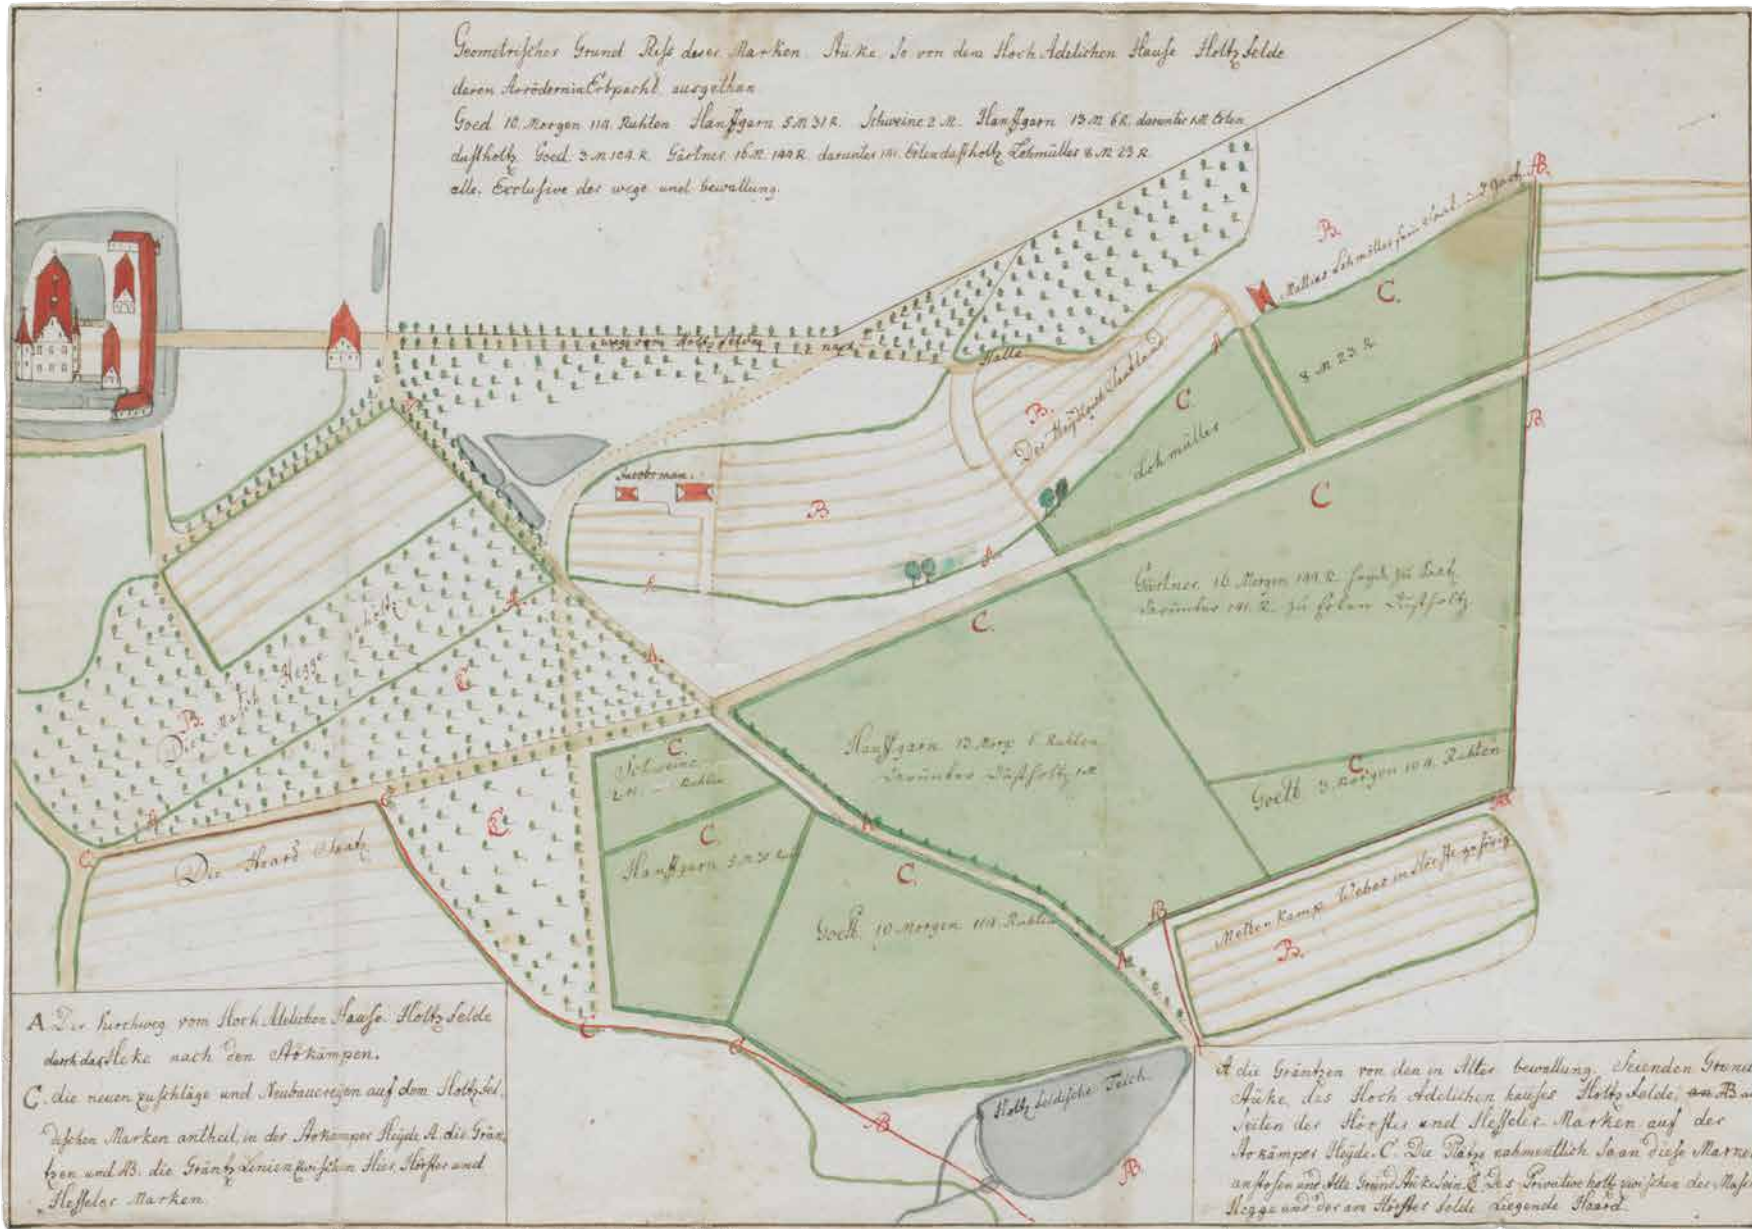 Geometrischer Grund Riss derer Marken Stücke so von dem Hoch Adelichen Hause Holtzfelde
deren Arrödern in Erbpacht ausgethan
Goed 10. Morgen 114. Ruhten Hanffgarn 5 M 31 R. Schweine 2 M. Hanffgarn 13 M 6 R. darunter 1 M Erlen
dustholtz Goed. 3 M 104. R. Gärtner 16 M. 144 R. darunter 141. Erlen dustholtz Lehmüller 8 M 23 R
alle. Exclusive der wege und bewallung.
B.
Mattias Lehmöller sein
B.
C.
8 M 23 R.
weg vom Holtzfelde nach
Halle
B.
Die Heydkamp Saatland
A
C
Lehmüller
B
Jacobsman.
B
C
A
A
A.
Gärtner 16 Morgen 144 R. heyde zu Saat
darunter 141. R. zu Erlen Dustholtz
C.
A.
C
B.
Die Masch Hegge holtz
Hanffgarn 13 Morg 6 Ruhten
darunter Dustholtz 1 M
C.
Schweine
2 M. Ruhten
C.
Goett 3 Morgen 104. Ruhten
B
A
C
C
Die Haard Saatz
C
C.
Hanffgarn 5 M 31 R
A
C.
Goett 10 Morgen 114. Ruhten
B
Metten Kamp Weber in Hörste gehörig
B.
A
C
C
A
Holtzfeldische Teich
B
B
A Der Kirchweg vom Hoch Adelichen Hause Holtzfelde
durch das Heke nach den Arkämpen.
C. die neuen zuschläge und Neubauereyen auf dem Holtzfel-
dischen Marken antheil, in der Arkämper Heyde A. die Grän-
tzen und AB. die Gräntz Linien zwischen Hier, Hörster und
Hesseler Marken
A die Gräntzen von den in Alter bewallung Seienden Grund
Stüke, des Hoch Adelichen hauses Holtzfelde, an AB
Seiten der Hörster und Hesseler Marken auf der
Arkämper Heyde. C. Die Plätze nahmentlich so an diese Marken
anstosen und Alte Grund Stüke sein. C Das Privative holtz zwischen der Masch
Hegge und der am Hörster felde Liegende Haard.